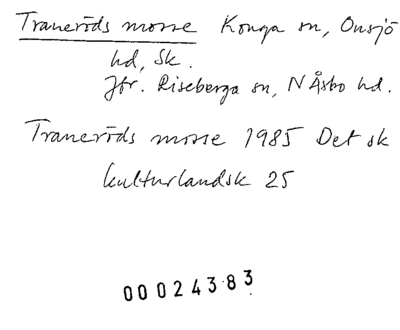 Traneröds mosse Konga sn, Onsjö
hd, Sk.
Jfr. Riseberga sn, N Åsbo hd.
Traneröds mosse 1985 Det sk
kulturlandsk 25
00024383